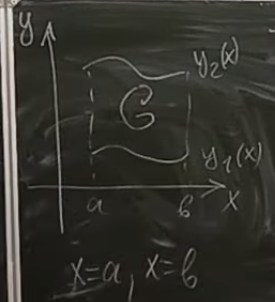 y
y₂(x)
G
y₁(x)
a
b
x
x=a, x=b